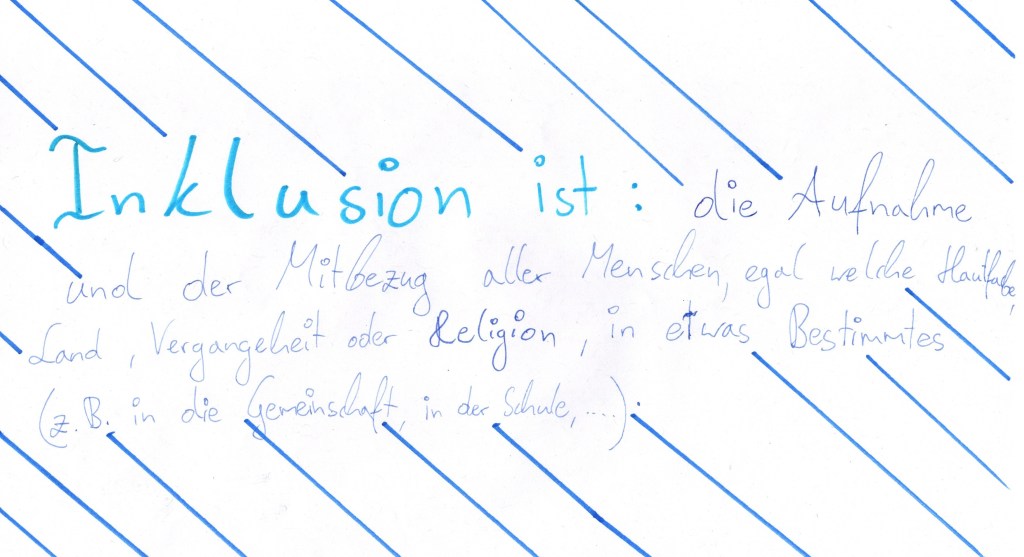 Inklusion ist: die Aufnahme
und der Mitbezug aller Menschen, egal welche Hautfarbe,
Land, Vergangeheit oder Religion, in etwas Bestimmtes
(z.B. in die Gemeinschaft, in der Schule, ....).